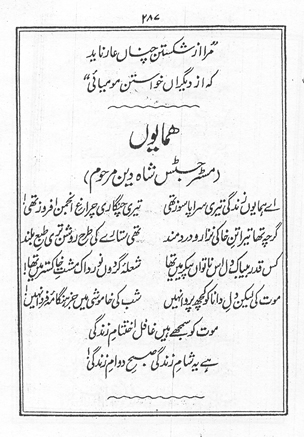 ۲۸۷
"مرا از شکستن چناں عار ناید
کہ از دیگراں خواستن مومیائی"
ہمایوں
(مسٹر جسٹس شاہ دین مرحوم)
اے ہمایوں! زندگی تیری سراپا سوز تھی تیری چنگاری چراغِ انجمن افروز تھی!
گرچہ تھا تیرا تنِ خاکی نزار و دردمند تھی ستارے کی طرح روشن تری طبعِ بلند
کس قدر بیباک دل اس ناتواں پیکر میں تھا شعلۂ گردوں نورد اک مشتِ خاکستر میں تھا!
موت کی لیکن دلِ دانا کو کچھ پروا نہیں شب کی خاموشی میں جز ہنگامۂ فردا نہیں!
موت کو سمجھے ہیں غافل اختتامِ زندگی
ہے یہ شامِ زندگی صبحِ دوامِ زندگی!